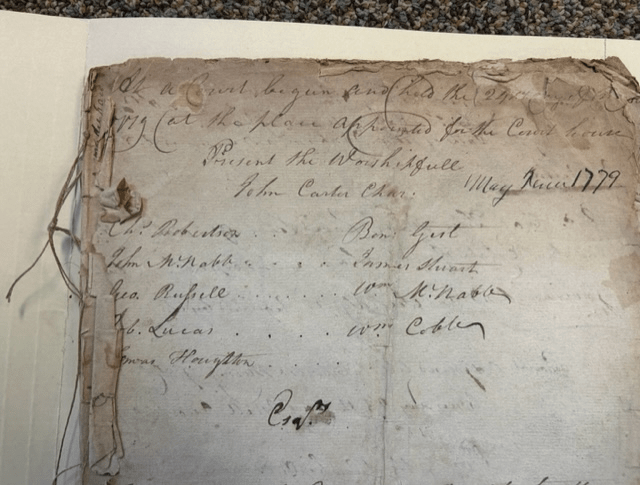 At a Court begun and held the 24
1779 (at the place appointed for the Court house
Present the Worshipfull
John Carter Char:
May 1779
Chs. Robertson . . . Benn Gist
John McNabb . . . . James Stuart
Geo. Russell . . . . Wm McNabb
Jab. Lucas . . . . Wm Cobb
Houghton . . . . .
Esqrs